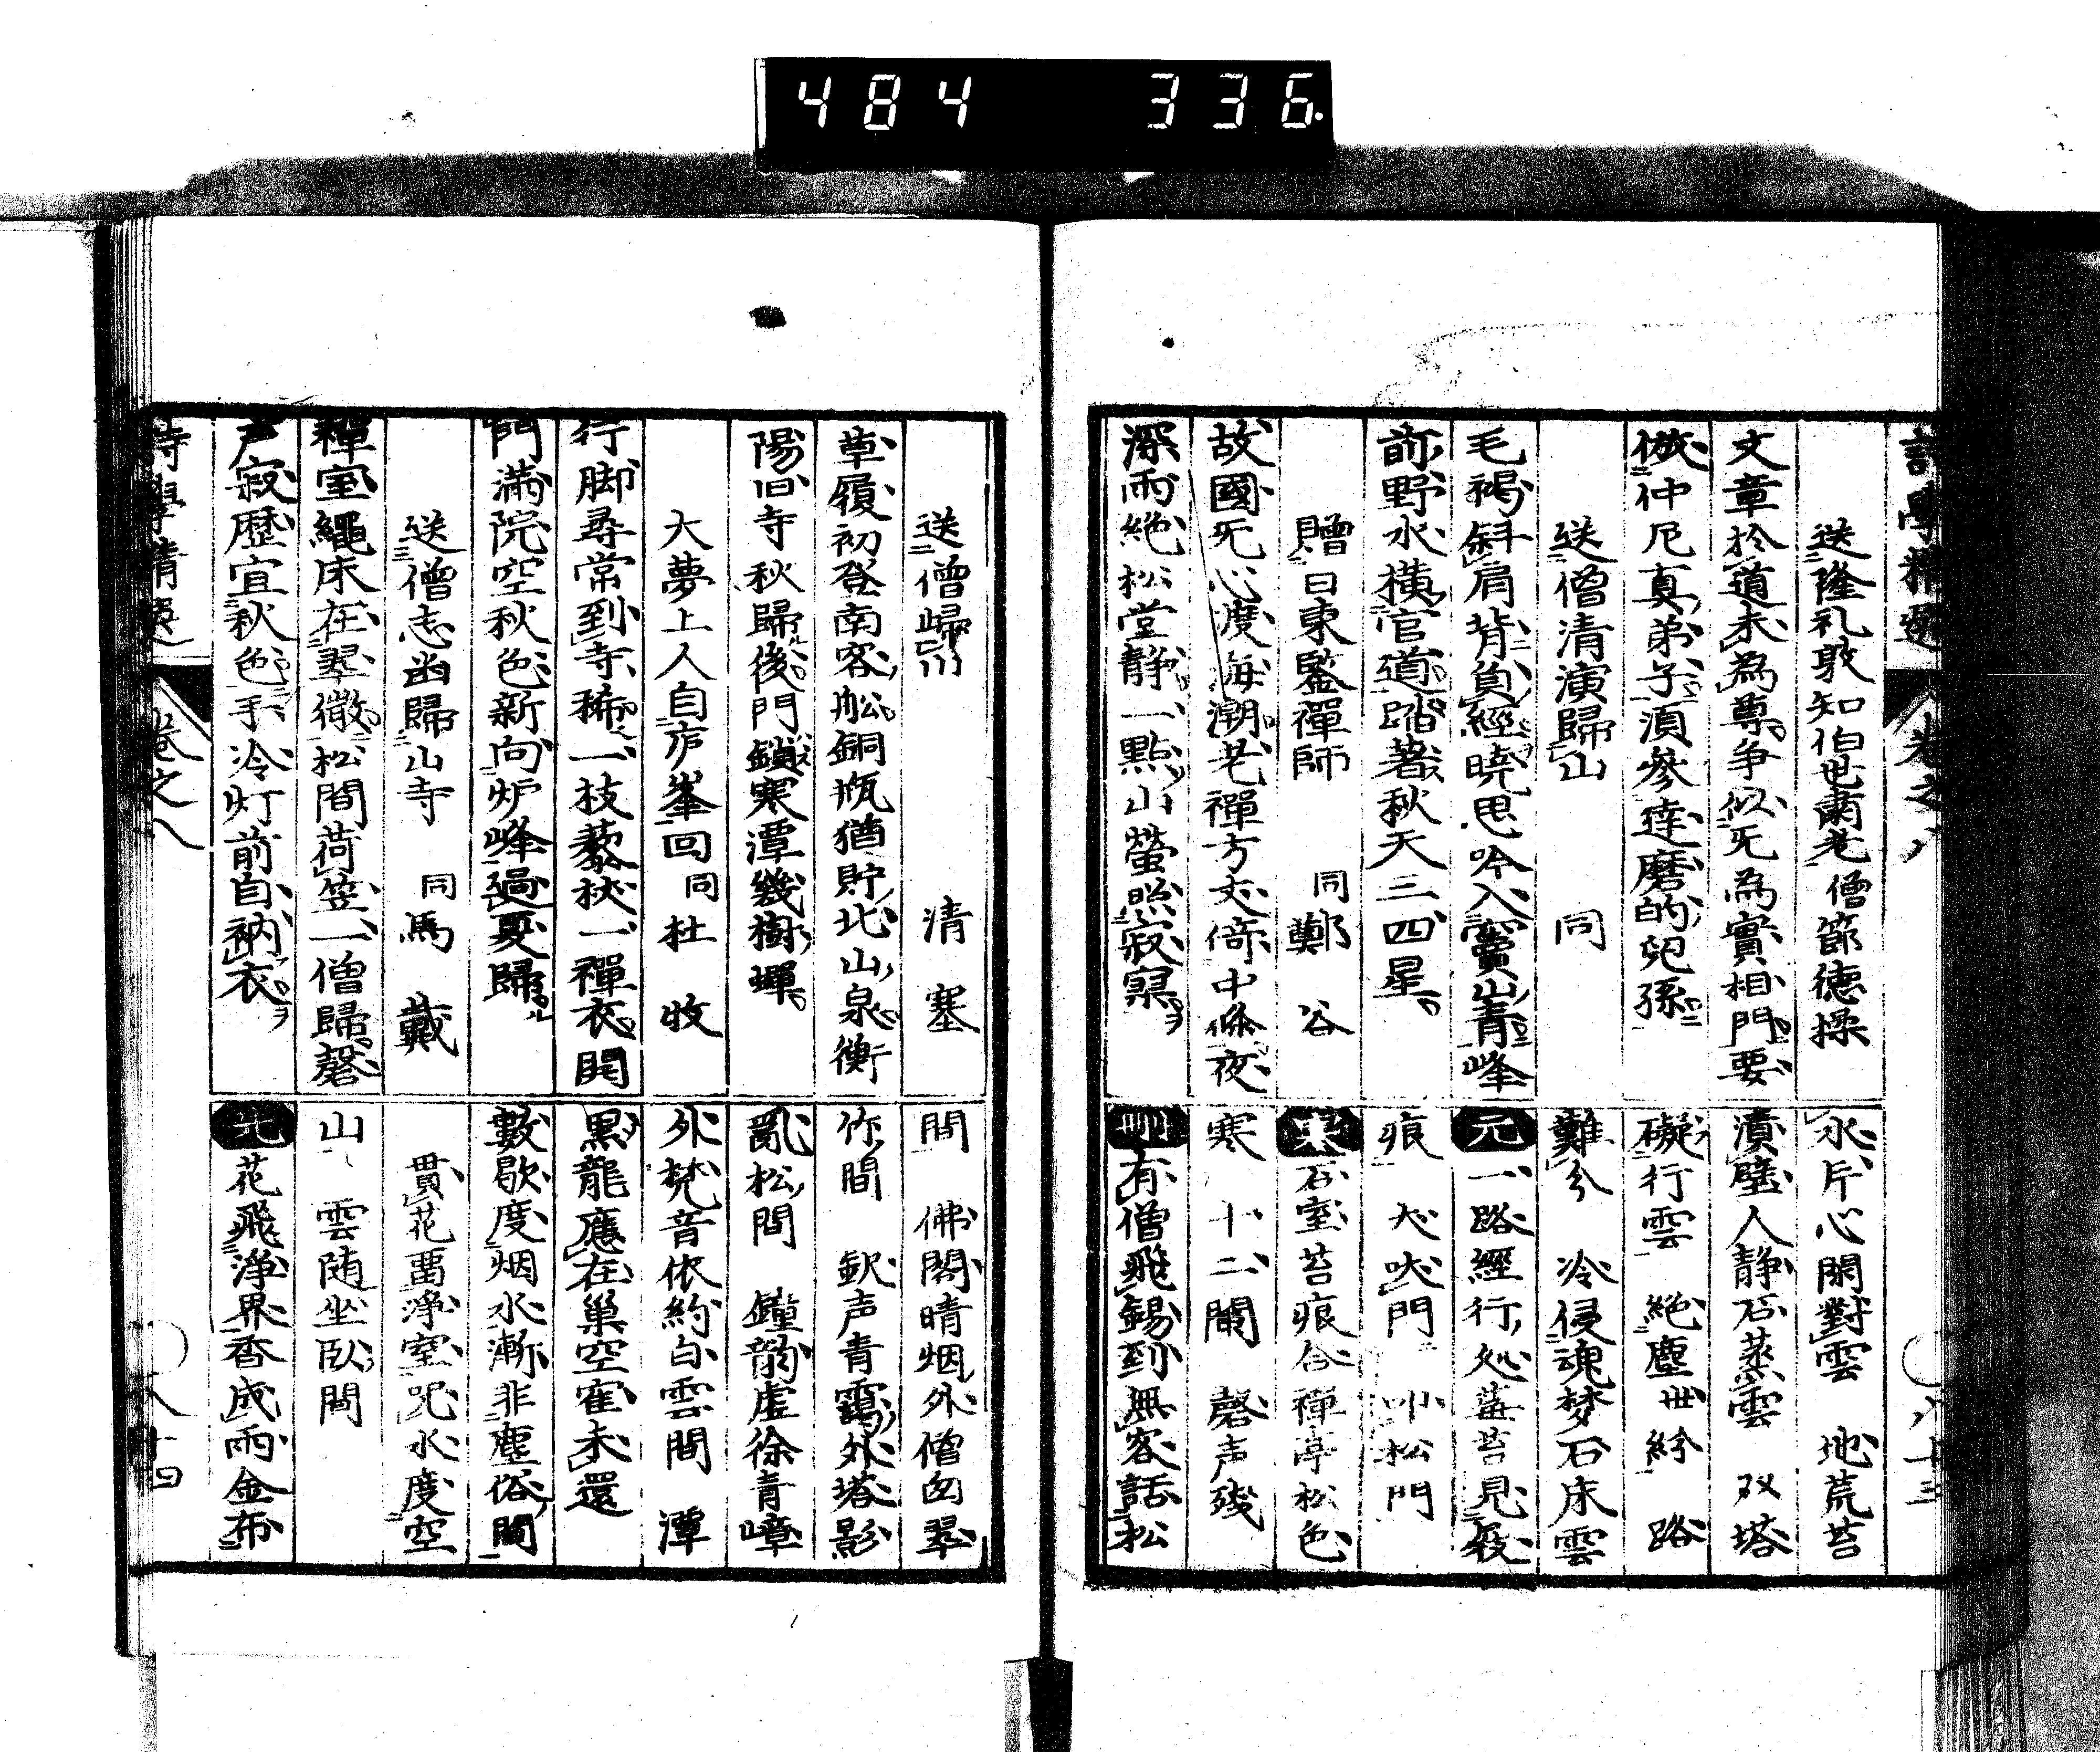 484 336
詩學精選 卷之八 八十三
送隆礼敢知伯世肅老 僧節德操
文章於道未為尊争似旡為實相門要
倣仲尼真弟子須參達磨的兒孫
送僧清演歸山 同
毛褐斜肩背負經曉思吟入竇山青峰
前野水橫官道踏著秋天三四星
贈日東鑒禪師 同鄭谷
故國旡心度海潮老禪方丈倚中條夜
深雨絶松堂静一點山螢照寂寞
氷片心閑對雲 地荒苔
漬壁人静石蒸雲 双塔
礙行雲 絶塵世紛 路
難分 冷侵魂梦石床雲
元 一路經行処莓苔見屐
痕 犬吠門 叫松門
石室苔痕合禪亭松色
寒 十二闌 磬声残
有僧飛錫到無客話松
間 佛閣晴烟外僧囱翠
送僧歸 清塞
草履初登南客舩銅瓶猶貯北山泉衡
陽旧寺秋歸後門鎖寒潭幾樹蟬
大夢上人自庐峯回 同杜牧
行脚尋常到寺稀一枝藜杖一禪衣開
門滿院空秋色新向炉峰過夏歸
送僧志幽歸山寺 同馬戴
禪室繩床在翠微松間荷笠一僧歸磬
声寂歴宜秋色手冷灯前自衲衣
竹間 欽声青靄外塔影
亂松間 鐘韵虚徐青嶂
外梵音依約白雲間 潭
黒龍應在巢空寉未還
數歇度烟水漸非塵俗間
貫花畱浄室咒水度空
山 雲随坐臥間
先 花飛浄界香成雨金布
詩學精選 卷之八 八十四